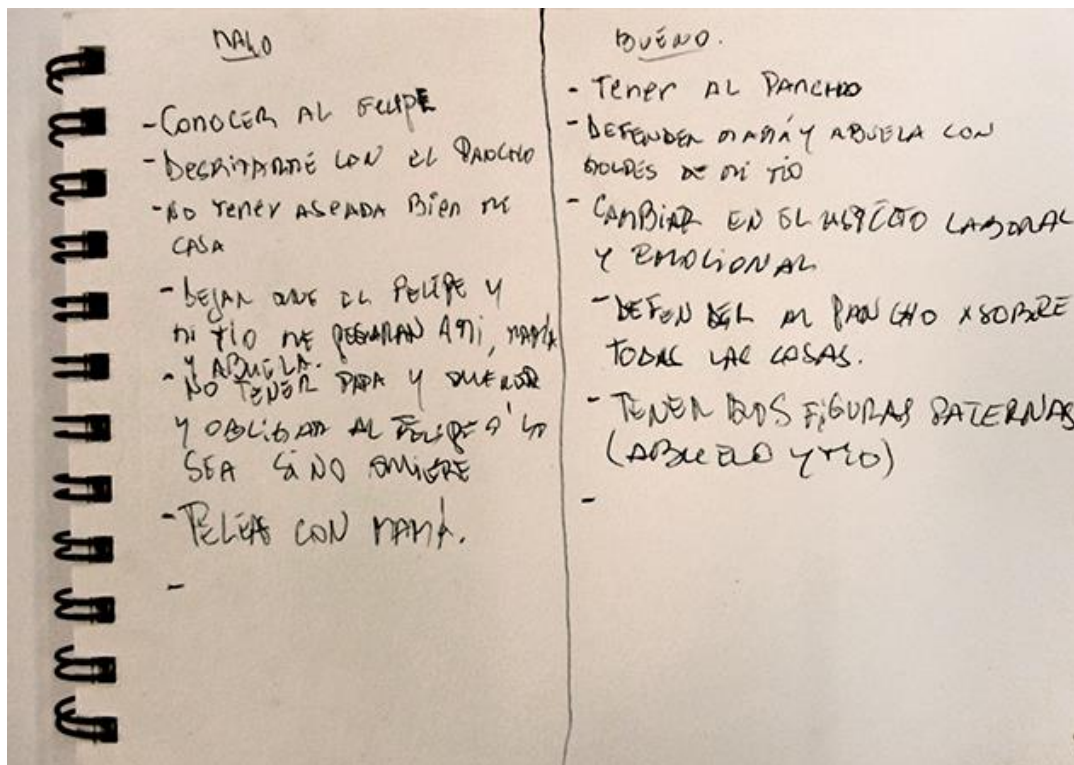 MALO
- CONOCER AL FELIPE
- DESQUITARME CON EL PANCHO
- NO TENER ASEADA BIEN MI
CASA
- DEJAR QUE EL FELIPE Y
MI TÍO ME PEGARAN A MI, MAMÁ
Y ABUELA.
- NO TENER PAPA Y QUERER
Y OBLIGAR AL FELIPE Q' LO
SEA SI NO QUIERE
- PELEAS CON MAMÁ.
-
BUENO.
- TENER AL PANCHO
- DEFENDER MAMÁ Y ABUELA CON
GOLPES DE MI TÍO
- CAMBIAR EN EL ASPECTO LABORAL
Y EMOCIONAL
- DEFENDER AL PANCHO X SOBRE
TODAS LAS COSAS.
- TENER DOS FIGURAS PATERNAS
(ABUELO Y TÍO)
-